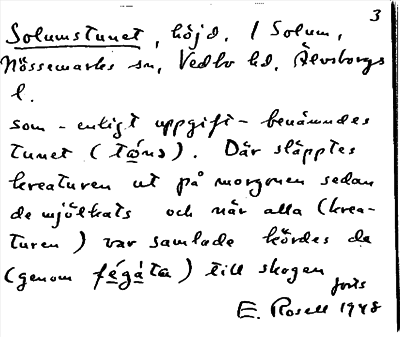 3
Solumstunet, höjd. / Solum,
Nössemarks sn, Vedbo hd, Älvsborgs
l.
som - enligt uppgift - benämndes
tunet (). Där släpptes
kreaturen ut på morgonen sedan
de mjölkats och när alla (krea-
turen) var samlade kördes de
(genom fégáta) till skogen
forts
E. Rosell 1948